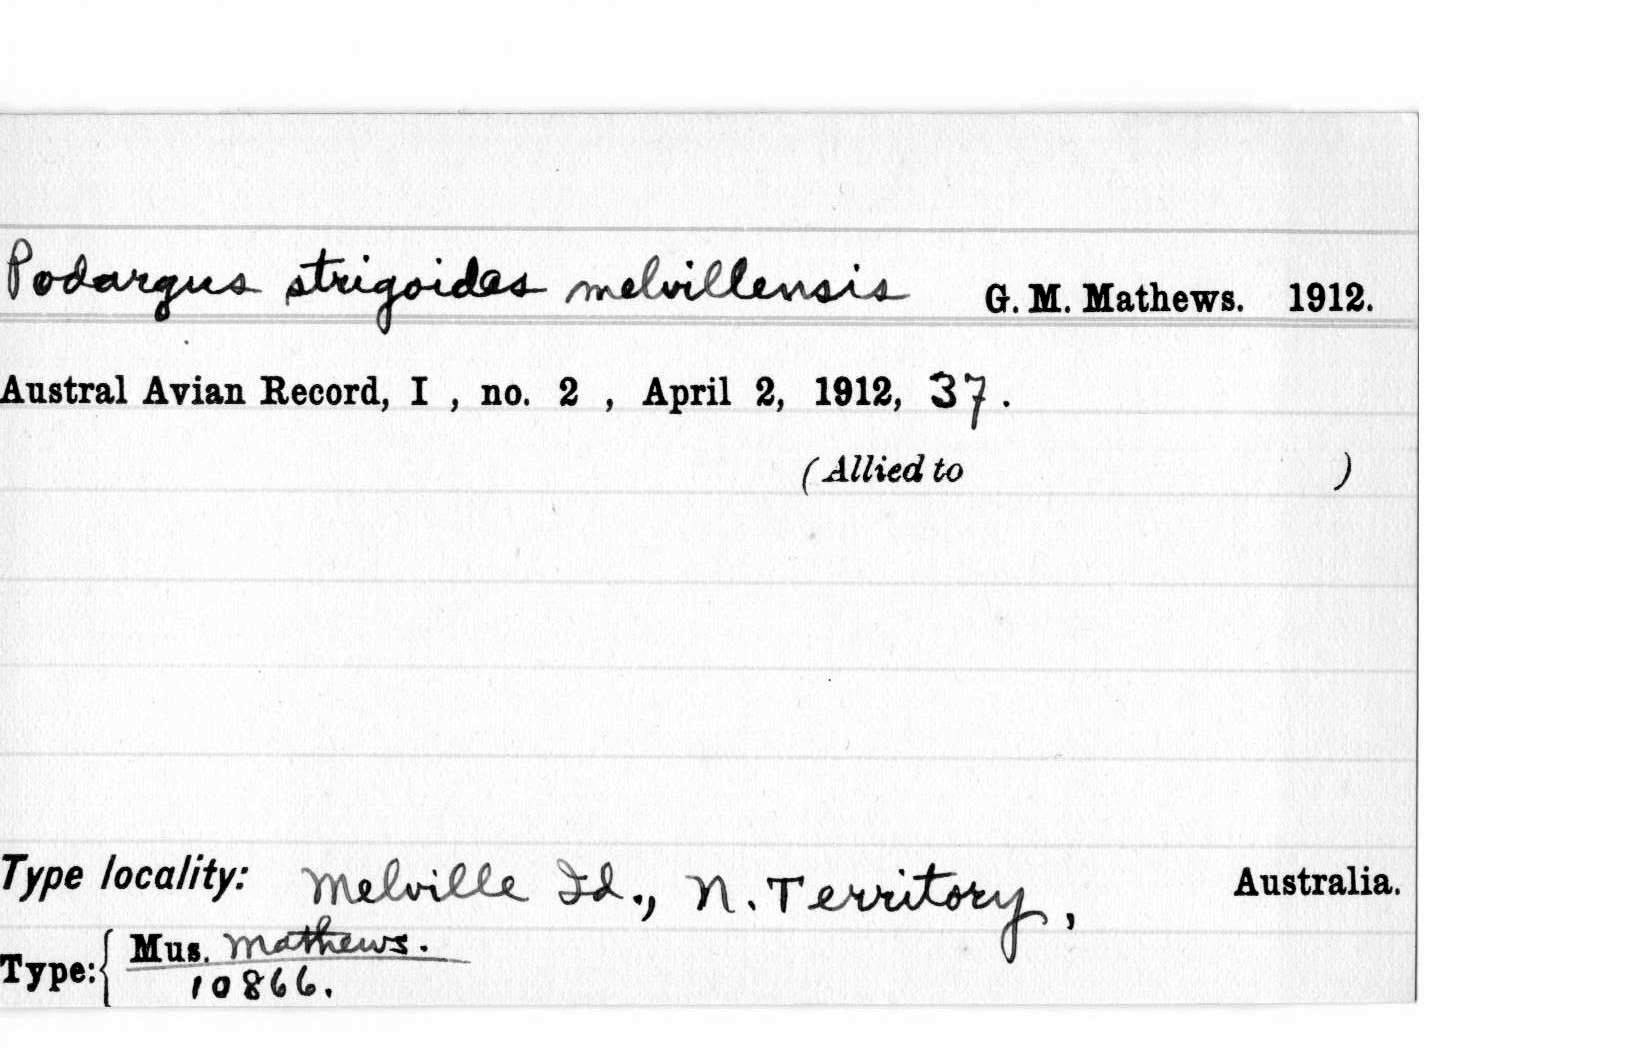 Podargus strigoides melvillensis G. M. Mathews. 1912.
Austral Avian Record, I , no. 2 , April 2, 1912, 37.
(Allied to )
Type locality: Melville Id., N. Territory, Australia.
Type: { Mus. Mathews.
10866.